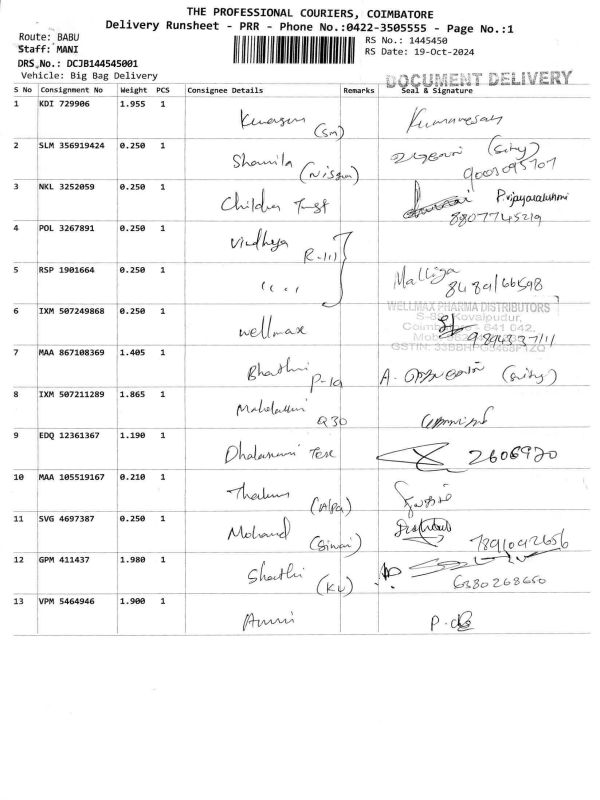 THE PROFESSIONAL COURIERS, COIMBATORE
Delivery Runsheet - PRR - Phone No.:0422-3505555 - Page No.:1
Route: BABU
RS No.: 1445450
Staff: MANI
RS Date: 19-Oct-2024
DRS.No.: DCJB144545001
Vehicle: Big Bag Delivery
DOCUMENT DELIVERY
S No Consignment No Weight PCS Consignee Details Remarks Seal & Signature
1 KDI 729906 1.955 1 (SM) Kumaresan
2 SLM 356919424 0.250 1 Shamila
3 NKL 3252059 0.250 1 Children Trust P.Vijayaralushmi
8807745219
4 POL 3267891 0.250 1 Vindheya R-111
5 RSP 1901664 0.250 1 " " Malliga
8489166598
6 IXM 507249868 0.250 1 Wellmax
WELLMAX PHARMA DISTRIBUTORS
Kovaipudur,
641 042,
7 MAA 867108369 1.405 1 Bhathri P-19 A.
8 IXM 507211289 1.865 1 Q30
9 EDQ 12361367 1.190 1 2606920
10 MAA 105519167 0.210 1
11 SVG 4697387 0.250 1 Mohand
12 GPM 411437 1.980 1 Shathi (KV)
6380268650
13 VPM 5464946 1.900 1 Ammi